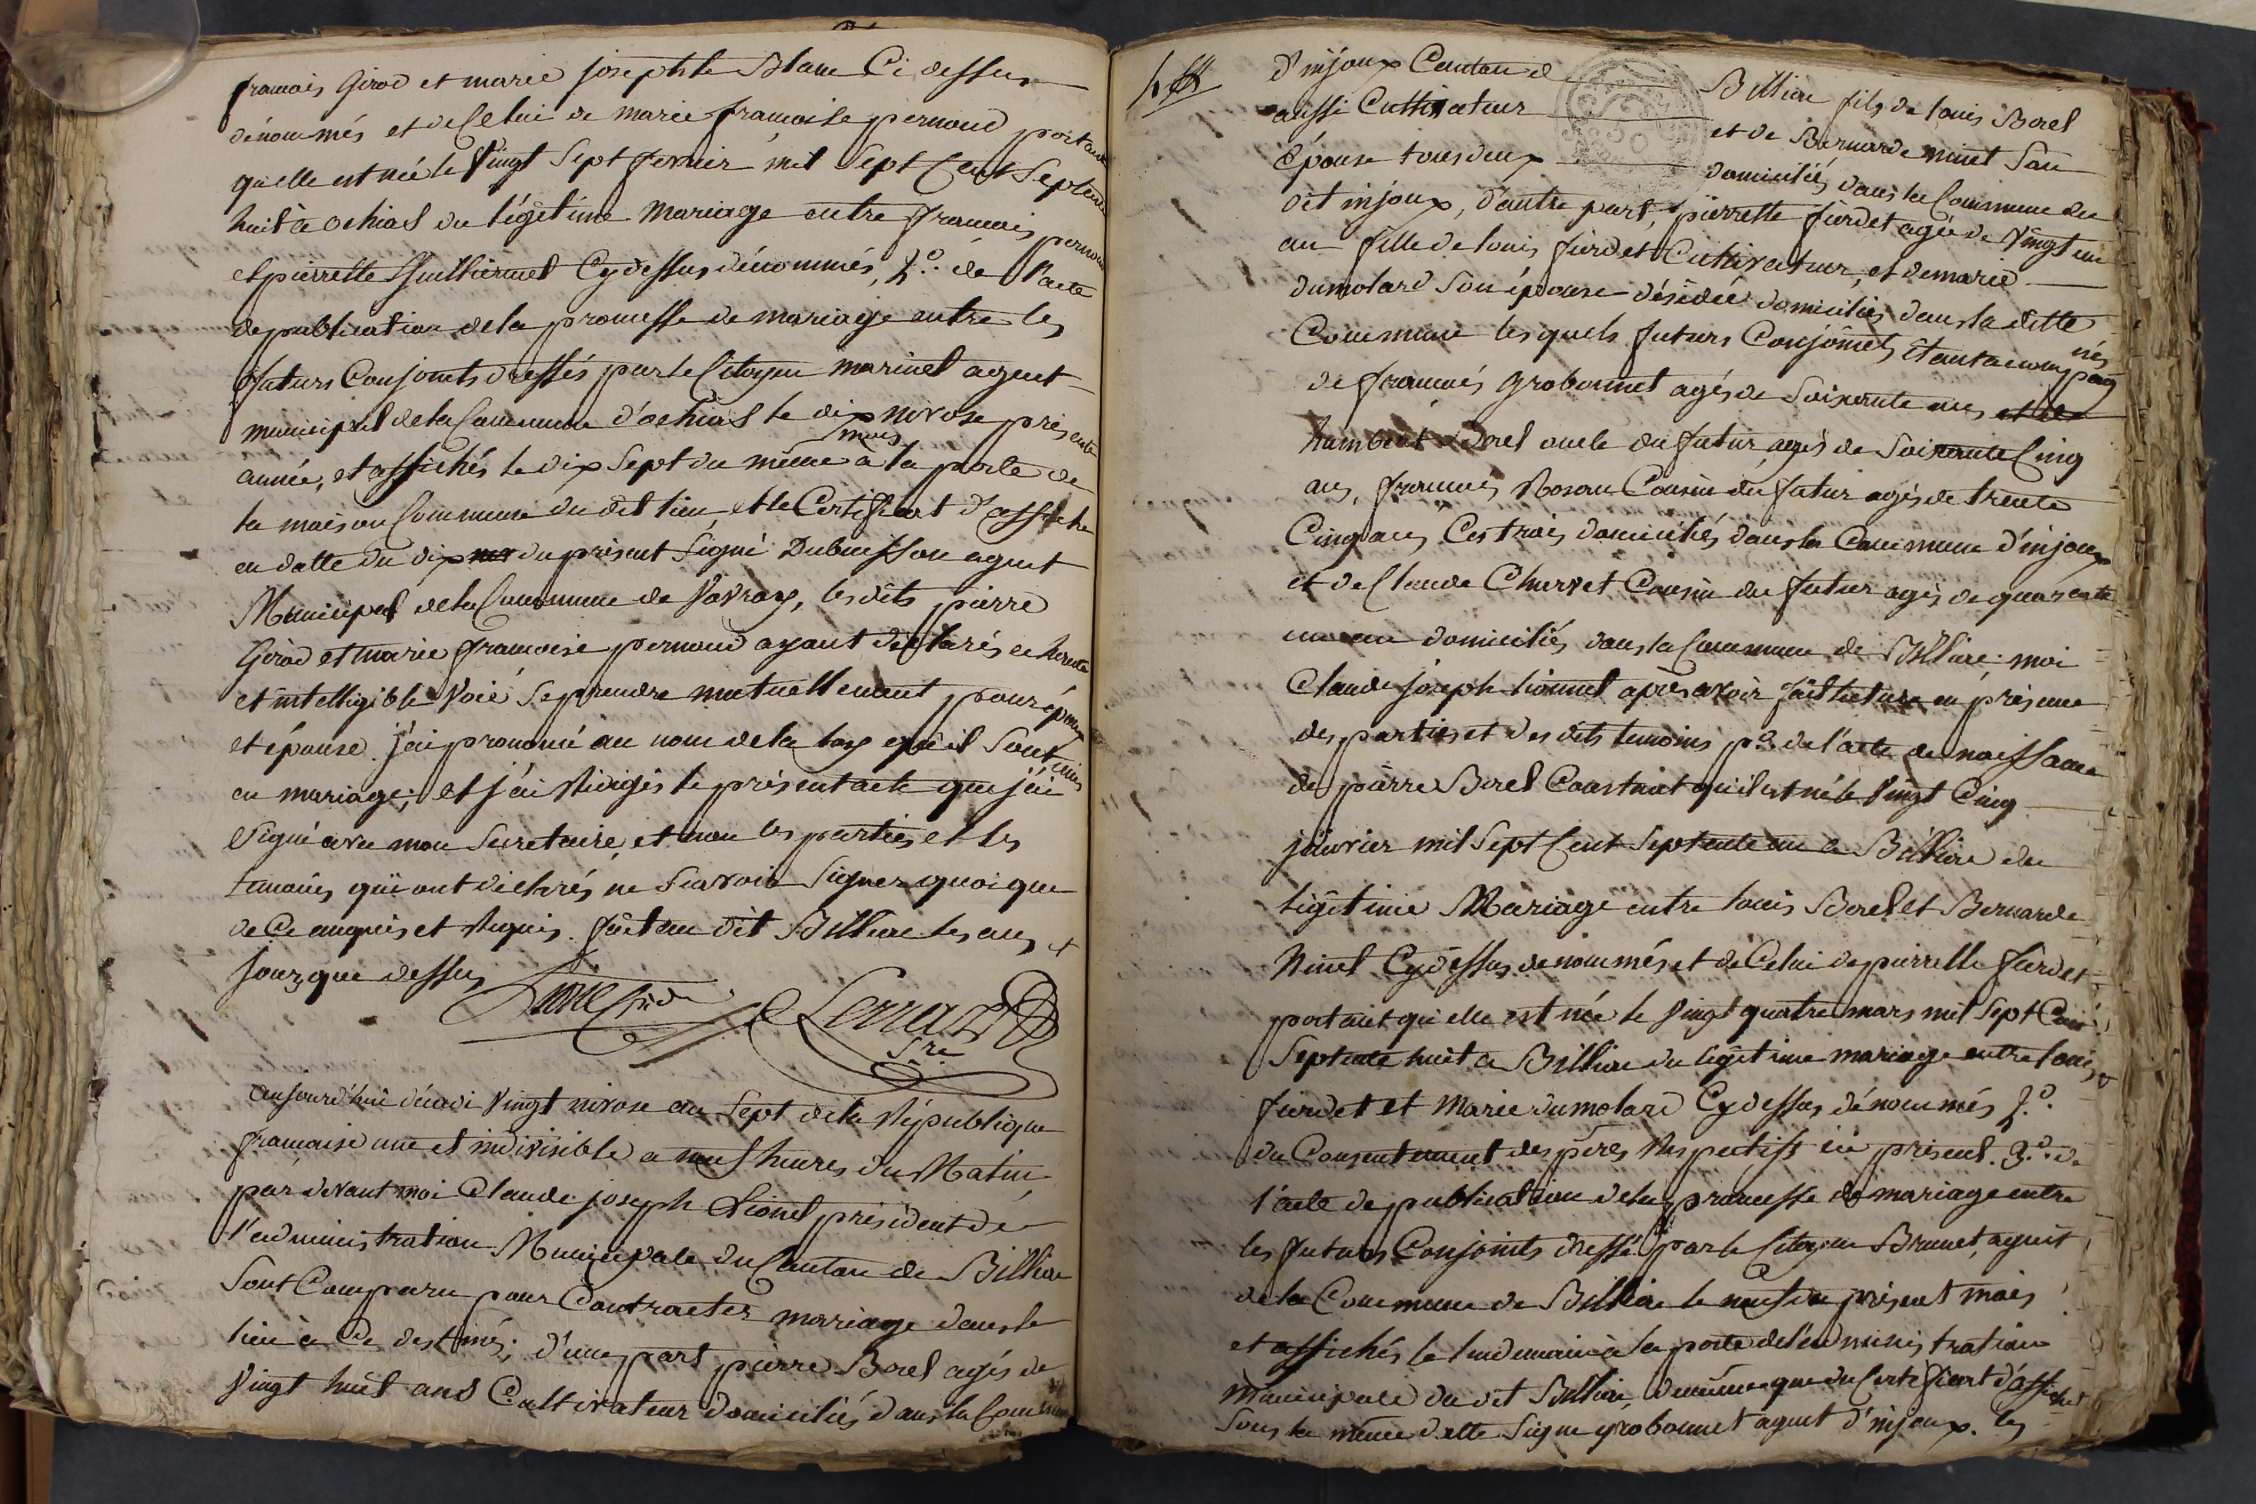 francois Girod et marie josephte Blanc Ci dessus
dénommés et de Celui de marie francoise pernoud portant
quelle est née le Vingt Sept fevrier mil Sept Cent Septente
huit à ochias du légitime Mariage entre francois pernoud
et pierrette Guilliermet Cy dessus dénommés, 2.° de l'acte
de publication de la promesse de mariage entre les
futurs Conjoints dressés par le Citoyen marinet agent
municipal de la Commune d'ochias le dix nivose présente
année, et affichés le dix Sept du même mois à la porte de
la maison Commune du dit lieu, et le Certificat d'affiche
en datte du dix du présent Signé Dubuisson agent
Municipal de la Commune de Vovray, les dits pierre
Girod et marie francoise pernoud ayant déclarés en haute
et intelligible Voie Se prendre mutuellement pour époux
et épouse. j'ai prononcé au nom de la loy qu'il Sont unies
en mariage; et j'ai Rédigés le présent acte que j'ai
Signé avec mon Secretaire, et non les parties et les
temoins qui ont déclarés ne Scavoir Signer quoique
de Ce enquis et Requis. fait au dit Billiat les an et
jour que dessus
Sre
aujourd'hui décadi Vingt nivose an Sept de la République
francaise une et indivisible a neuf heures du Matin,
par devant moi Claude joseph Lionet président de
l'administration Municipale du Canton de Billiat
Sont Comparu pour Contracter mariage dans le
lieu à Ce destinés; d'une part pierre Borel agés de
Vingt huit ans Cultivateur Domiciliés dans la Commune
d'injoux Canton de Billiat fils de louis Borel
aussi Cultivateur et de Bernarde ninet San
épouse tous deux domiciliés dans la Commune du
dit injoux, d'autre part, pierrette furdet agée de Vingt un
an fille de louis furdet Cultivateur, et de marie
dumolard Son épouse désédée domiciliés dans la ditte
Commune les quels futurs Conjoints étant accompagnés
de francois grobonnet agés de Soixante ans et de
humbert Borel oncle du futur, agés de Soixante Cinq
ans, francois Cousin du futur agés de trente
Cinq ans Ces trois domiciliés dans la Commune d'injoux
et de Claude Charvet Cousin du futur agés de quarente
un an domiciliés dans la Commune de Billiat. moi
Claude joseph lionnet après avoir fait lecture en présence
des parties et des dits temoins p.° de l'acte de naissance
de pierre Borel Constant qu'il est né le Vingt Cinq
janvier mil Sept Cent Septente un a Billiat du
légitime Mariage entre louis Borel et Bernarde
Ninet Cy dessus dénommés et de Celui de pierrette furdet
portant qu'elle est née le Vingt quatre mars mil Sept Cent
Septente huit a Billiat du légitime mariage entre louis
furdet et Marie dumolard Cy dessus dénommés 2.°
du Consentement des pères Respectifs ici présent. 3.° de
l'acte de publication de la promesse de mariage entre
les futurs Conjoints dressé par le Citoyen Brunet, agent
de la Commune de Billiat le neuf du présent mois
et affichés le lendemain à la porte de l'administration
Municipale du dit Billiat, de même que du Certificat d'affiche
Sous la même datte Signé grobonnet agent d'injoux. les